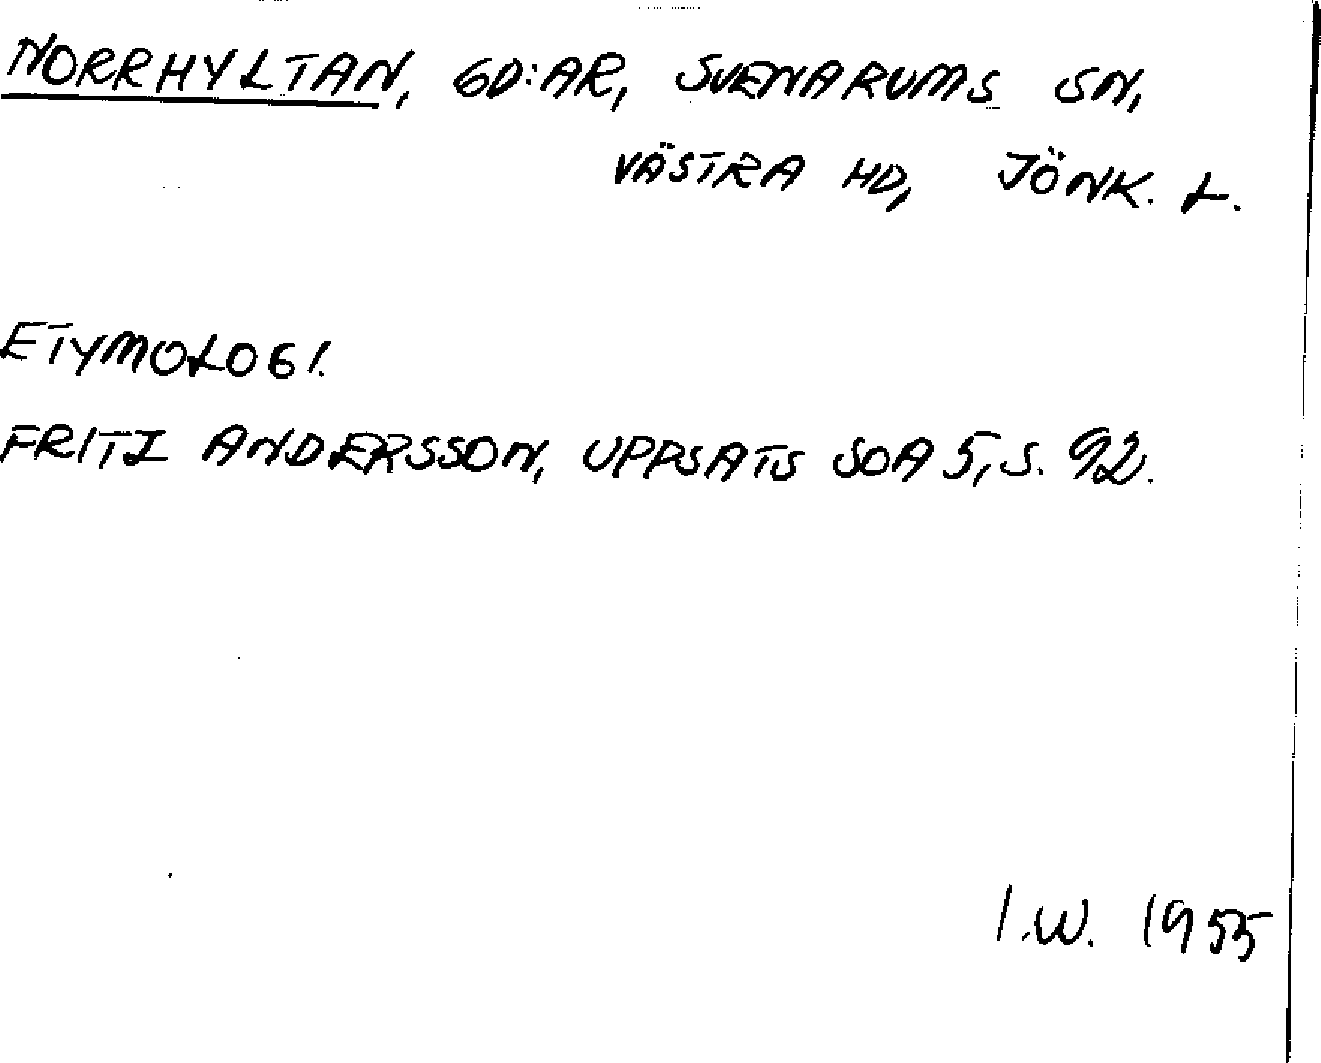 NORRHYLTAN, GD:AR, SVENARUMS SN,
VÄSTRA HD, JÖNK. L.
ETYMOLOGI.
FRITZ ANDERSSON, UPPSATS SOA 5, S. 92.
I.W. 1955